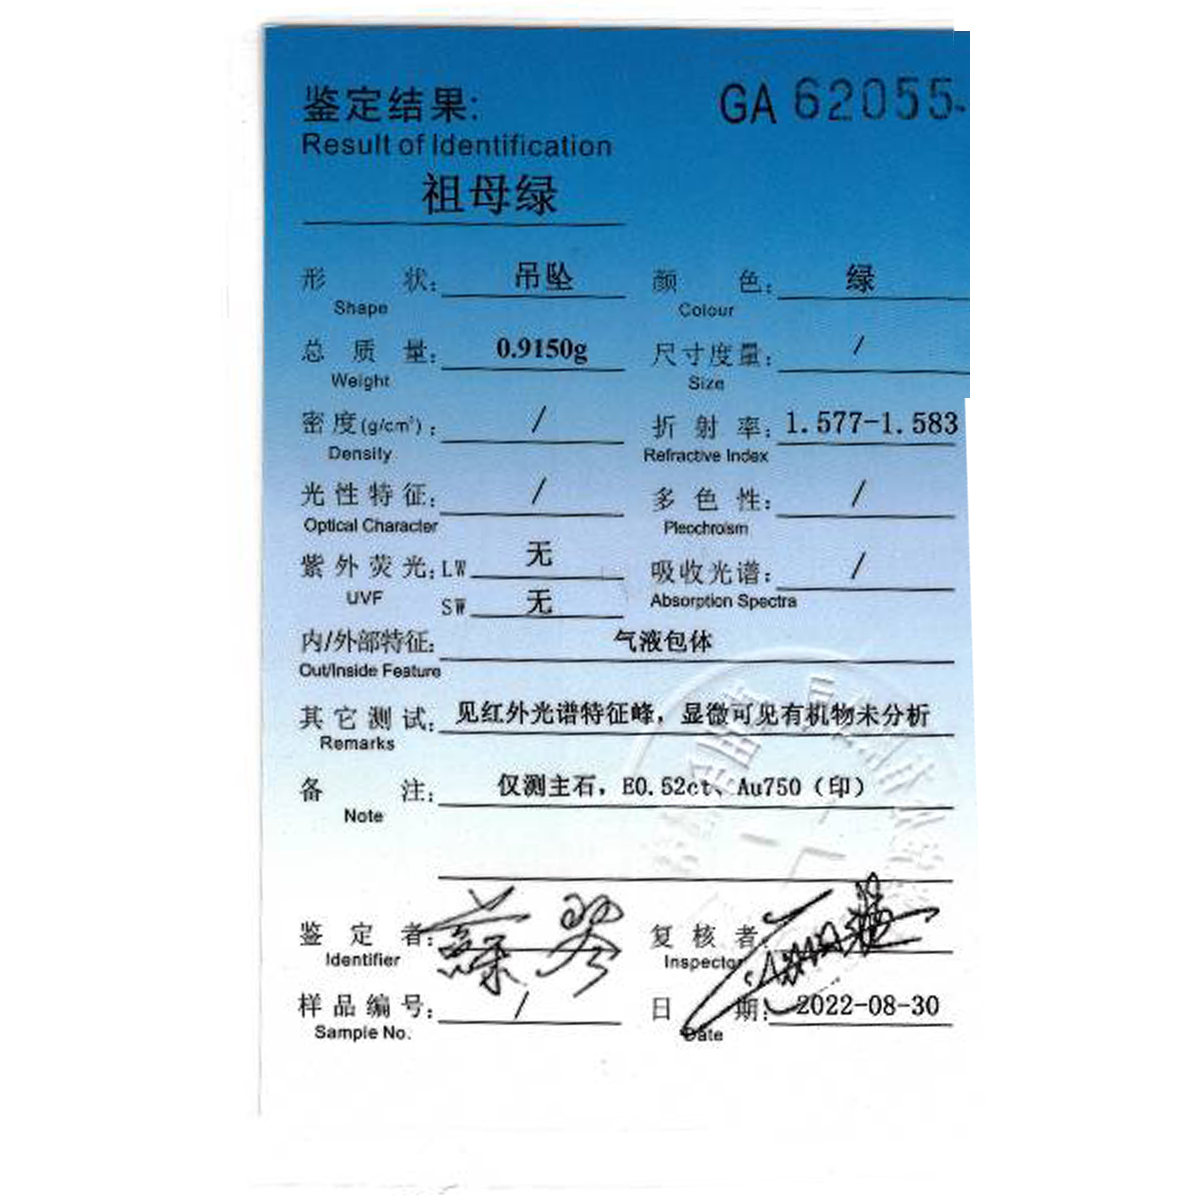 鉴定结果: GA 62055
Result of Identification
祖母绿
形 状: 吊坠 颜 色: 绿
Shape Colour
总 质 量: 0.9150g 尺寸度量: /
Weight Size
密度(g/cm³): / 折 射 率: 1.577-1.583
Density Refractive Index
光性特征: / 多 色 性: /
Optical Character Pleochroism
紫外荧光: LW 无 吸收光谱: /
UVF SW 无 Absorption Spectra
内/外部特征: 气液包体
Out/Inside Feature
其它测试: 见红外光谱特征峰，显微可见有机物未分析
Remarks
备 注: 仅测主石，E0.52ct、Au750（印）
Note
鉴 定 者: 复 核 者:
Identifier Inspector
样品编号: / 日 期: 2022-08-30
Sample No. Date